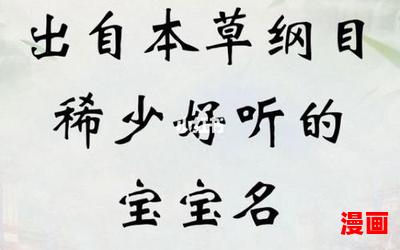 出自本草纲目
稀少好听的
宝宝名
漫画